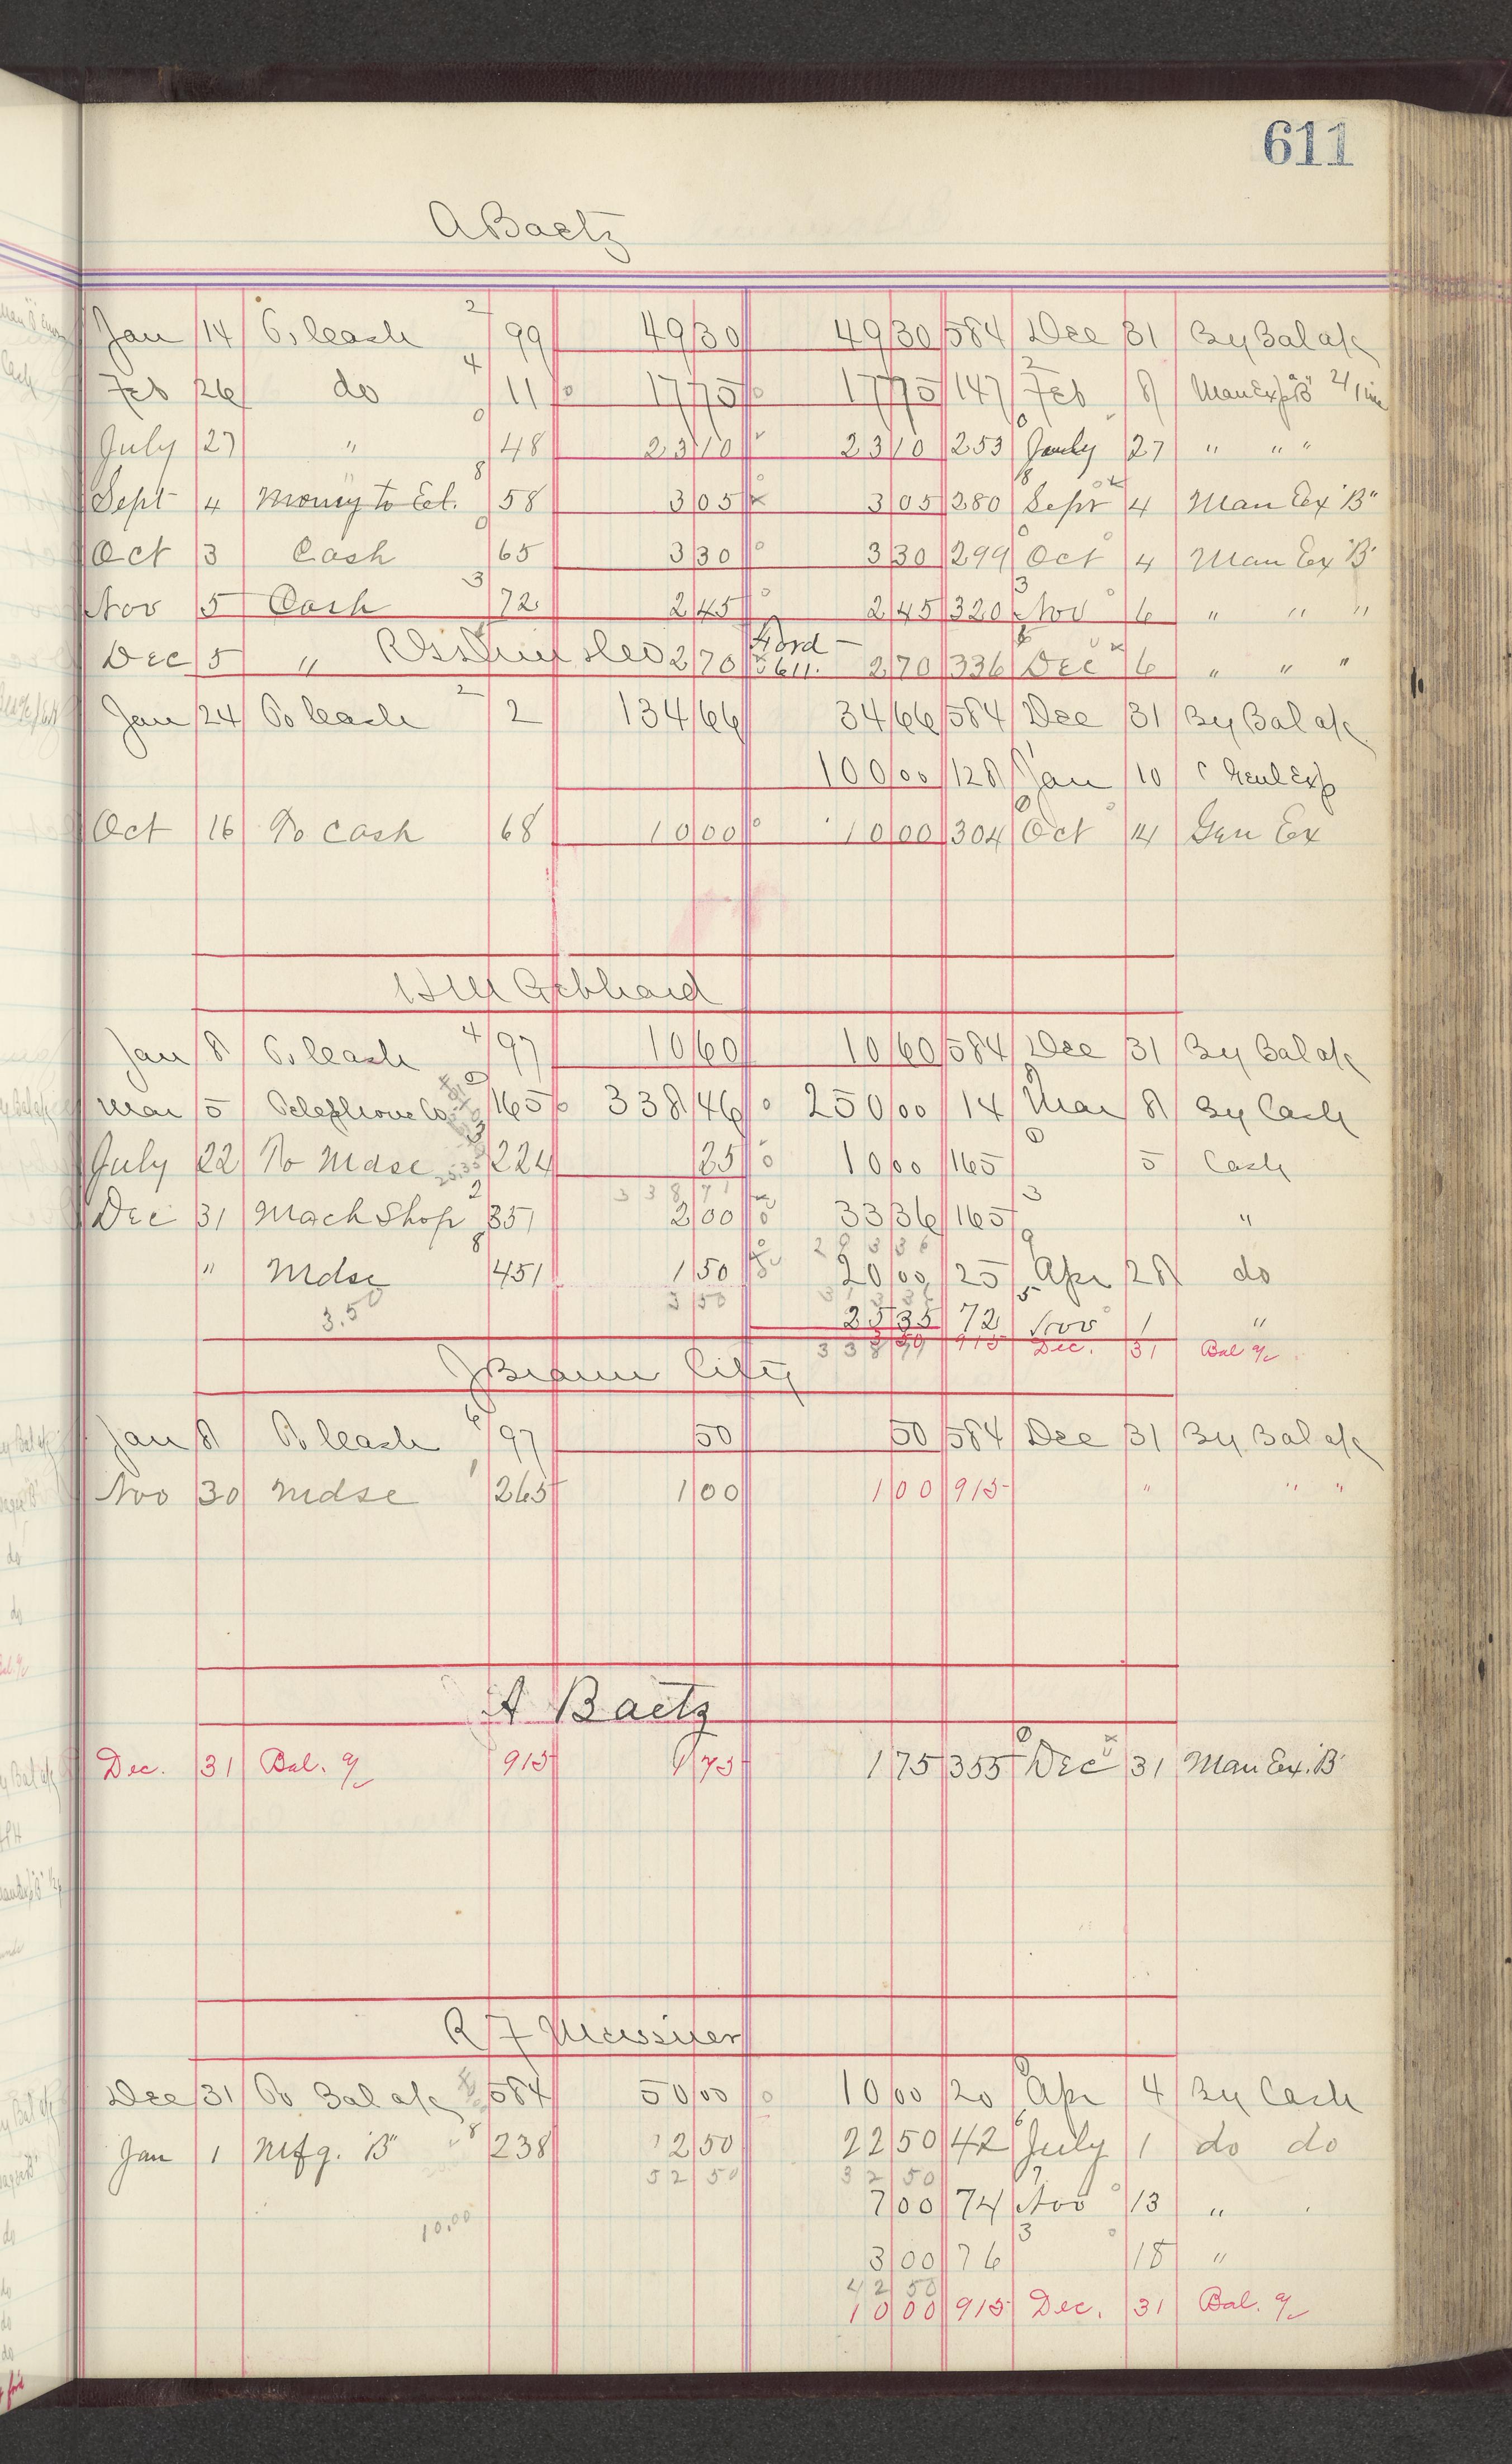 611
A Baetz
Jan 14 To Cash 2 99 49 30 49 30 584 Dec 31 By Bal a/c
Feb 26 do 4 11 17 75 17 75 147 Feb 8 Man Exp "B"
July 27 " 0 48 23 10 23 10 253 July 27 " " "
Sept 4 Money to Ed. 8 58 3 05 3 05 280 Sept 4 Man Ex "B"
Oct 3 Cash 0 65 3 30 3 30 299 Oct 4 Man Ex "B"
Nov 5 Cash 3 72 2 45 2 45 320 Nov 6 " " "
Ford
Dec 5 " 2 70 611. 2 70 336 Dec 6 " " "
Jan 24 To Cash 2 2 134 66 34 66 584 Dec 31 By Bal a/c
100 00 128 Jan 10 Genl Exp
Oct 16 To Cash 68 10 00 10 00 304 Oct 14 Gen Ex
H M Gebhard
Jan 8 To Cash 4 97 10 60 10 60 584 Dec 31 By Bal a/c
Mar 5 Telephone Co. 165 338 46 250 00 14 Mar 8 By Cash
July 22 To Mdse 224 25 10 00 165 5 Cash
338 71
Dec 31 Mach Shop 2 351 2 00 33 36 165 3 "
293 36
" Mdse 8 451 1 50 20 00 25 Apr 28 do
3.50 3 50 313 36
25 35 72 Nov 1 "
338 71 3 50 915 Dec. 31 Bal a/c
J Braun City
Jan 8 To Cash 6 97 50 50 584 Dec 31 By Bal a/c
Nov 30 Mdse 1 265 1 00 1 00 915 " " "
A Baetz
Dec. 31 Bal. a/c 915 1 75 1 75 355 Dec 31 Man Ex. "B"
R F Meissner
Dec 31 To Bal a/c 584 50 00 10 00 20 Apr 4 By Cash
Jan 1 Mfg. "B" 8 238 2 50 22 50 42 July 1 do do
52 50 32 50
7 00 74 Nov 13 "
10.00
3 00 76 3 18 "
42 50
10 00 915 Dec. 31 Bal. a/c